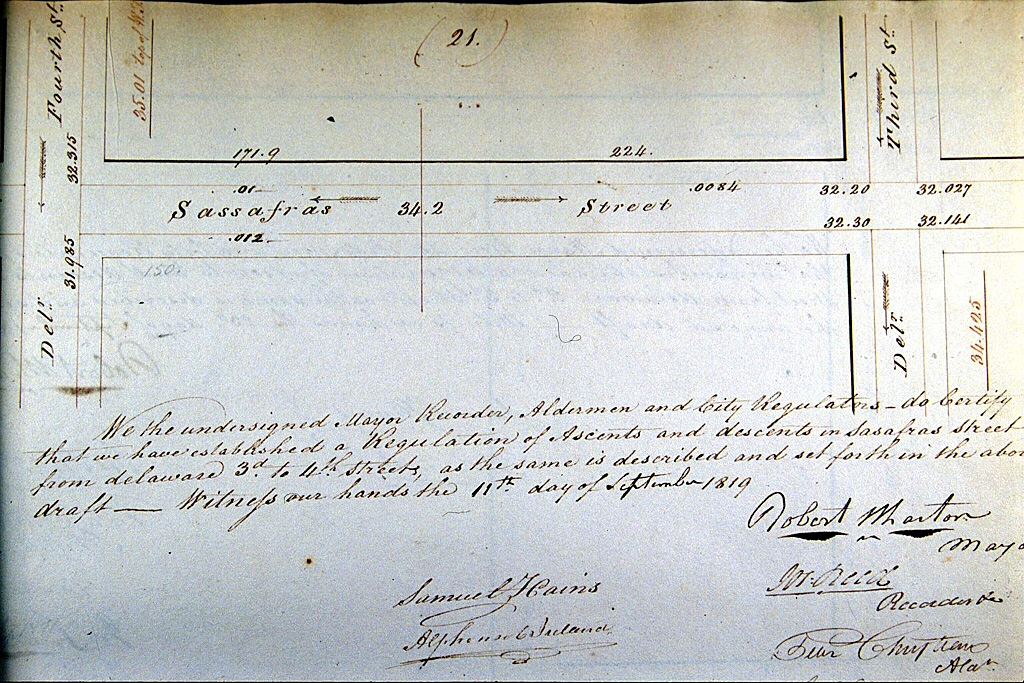 (21.)
Fourth St.
35.01
Third St.
171.9
224.
32.315
.01
.0084
32.20
32.027
Sassafras
34.2
Street
32.30
32.141
.012
31.985
150.
Delr.
Delr.
34.425
We the undersigned Mayor Recorder, Aldermen and City Regulators - do Certify
that we have established a Regulation of Ascents and descents in Sasafras street
from delaware 3d to 4th Streets, as the same is described and set forth in the abov
draft — Witness our hands the 11th day of September 1819
Robert Wharton
Mayo
Jos. Reed
Samuel Hains
Recorder &c
Alphonso C Ireland
Aldn